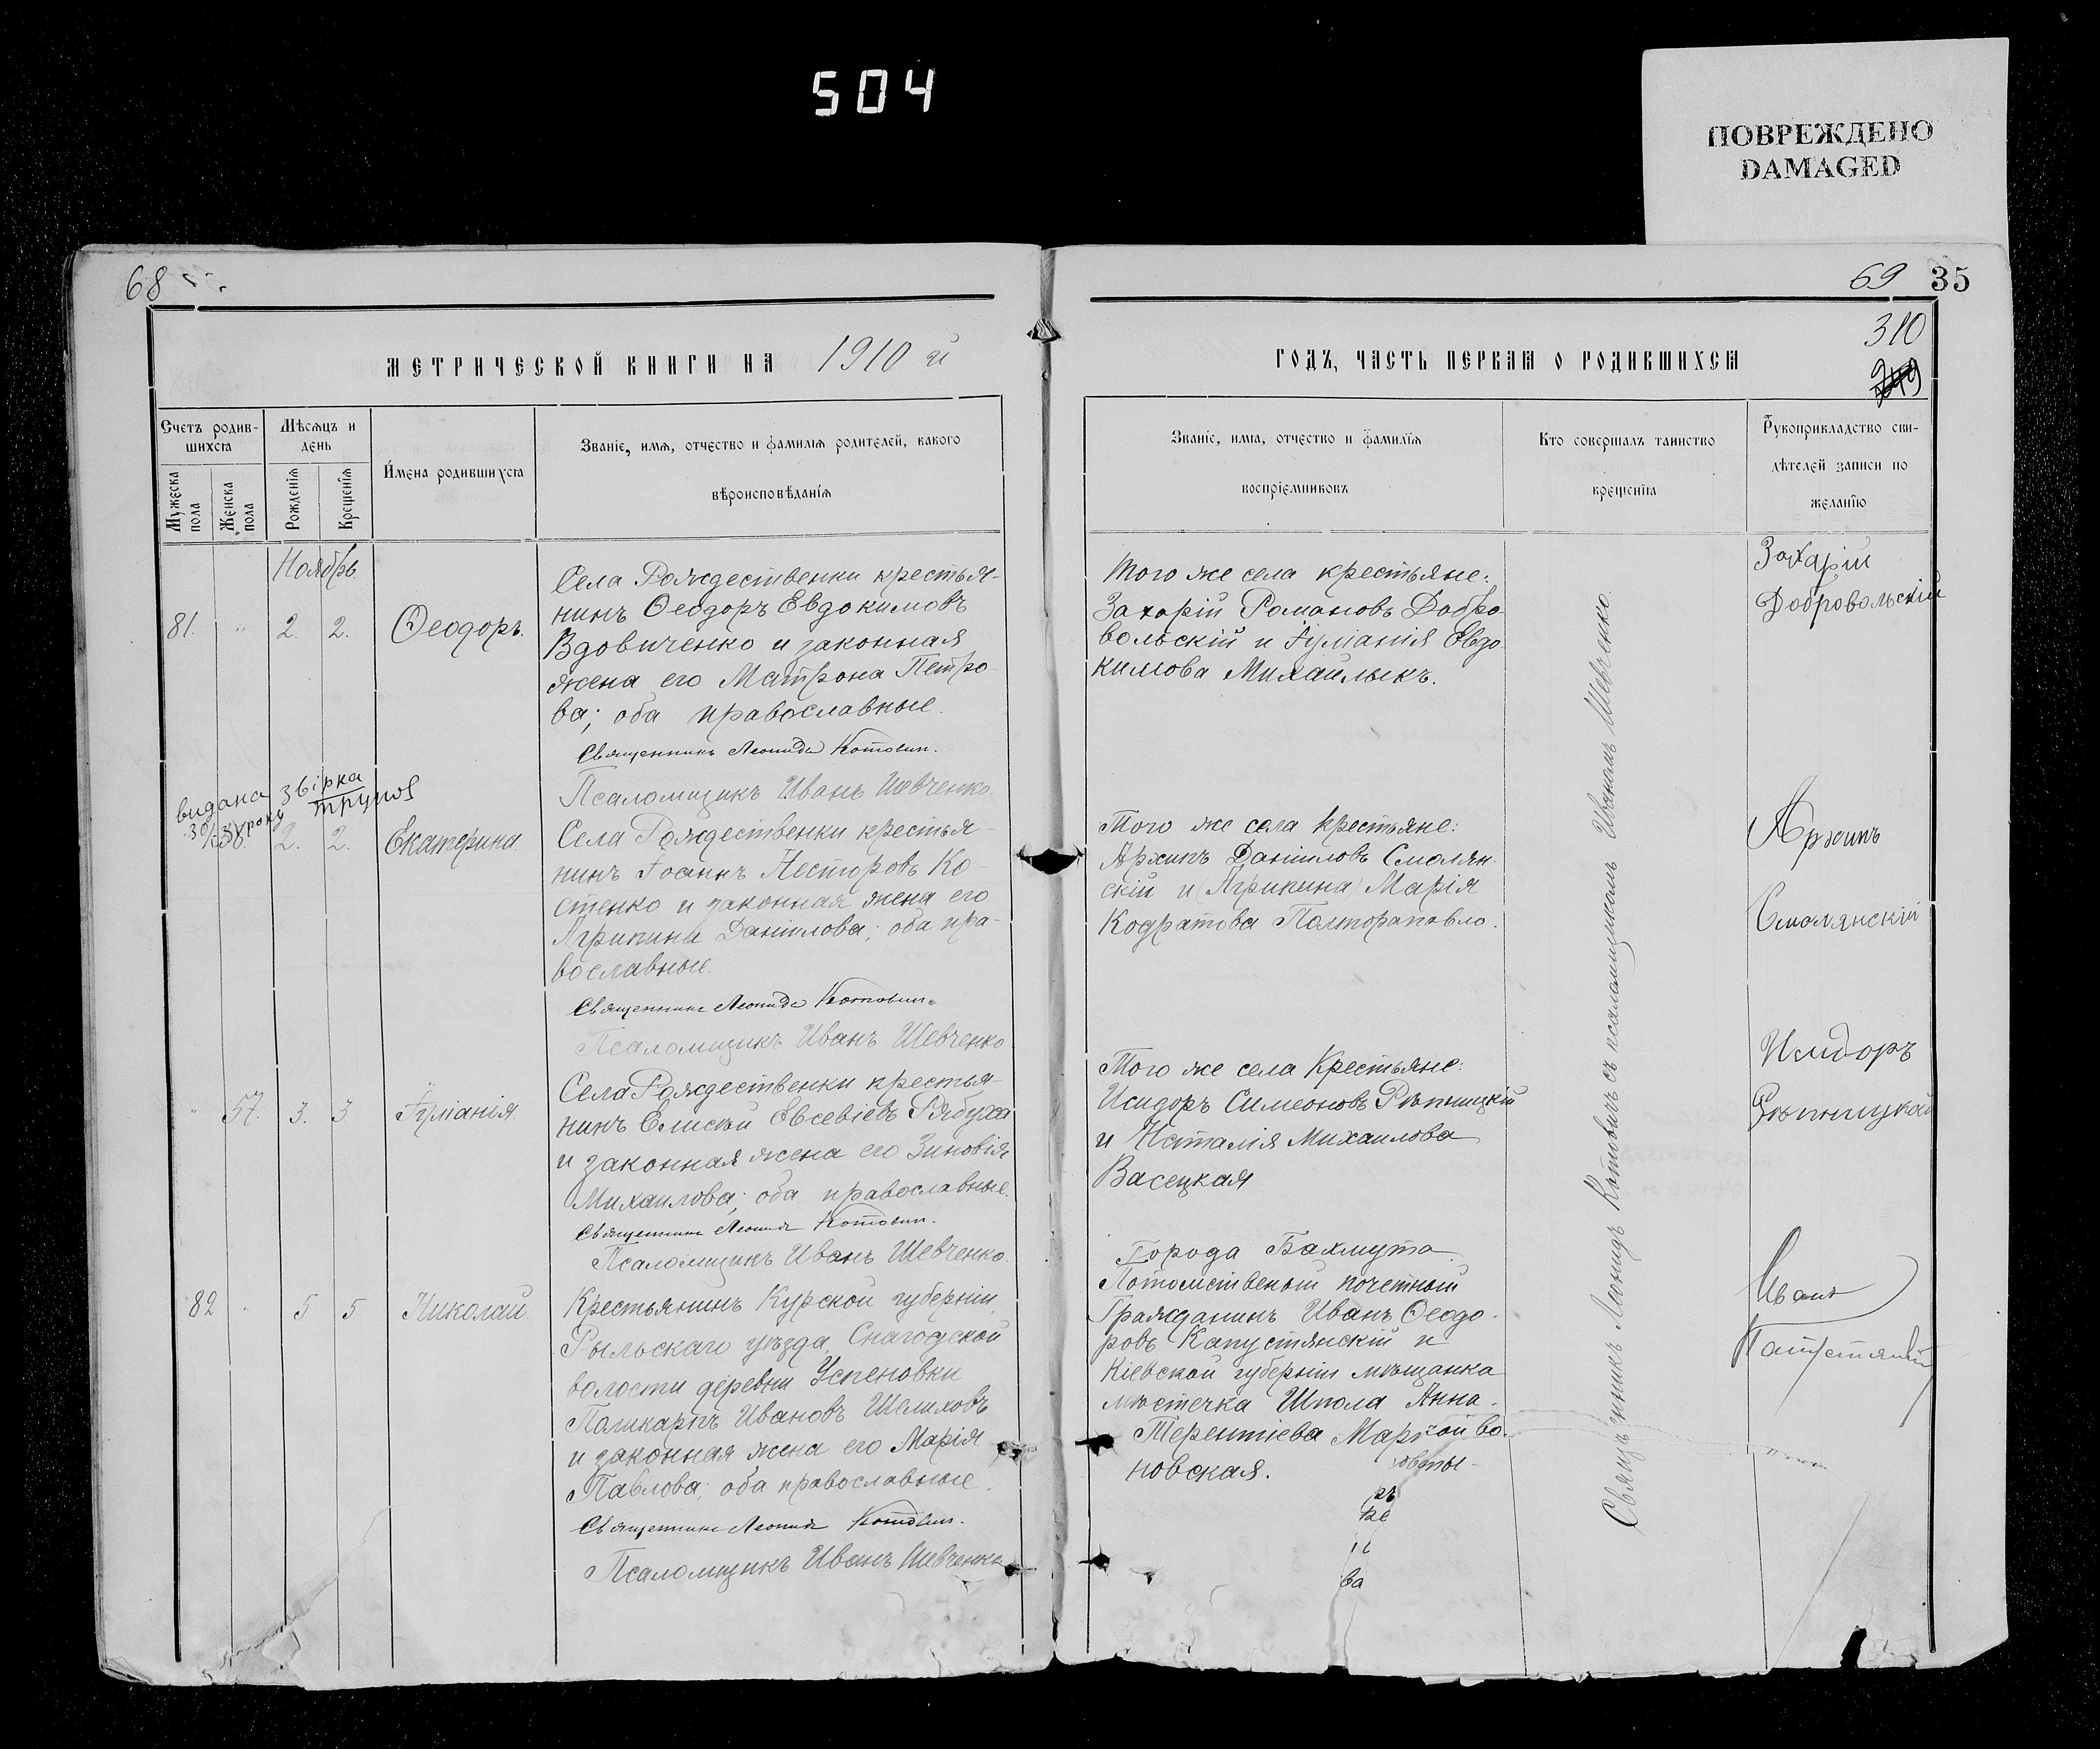 504
ПОВРЕЖДЕНО
DAMAGED
68
МЕТРИЧЕСКОЙ КНИГИ НА 1910 й
Счетъ родив-
шихся
Мужеска
пола
Женска
пола
Мѣсяцъ и
день
Рожденія
Крещенія
Имена родившихся
Званіе, имя, отчество и фамилія родителей, какого
вѣроисповѣданія
Ноябрь
81. " 2. 2. Ѳеодоръ.
Села Рождественки крестья-
нинъ Ѳеодоръ Евдокимовъ
Вдовиченко и законная
жена его Матрона Петро-
ва; оба православные.
Священникъ Леонидъ Котович.
Псаломщикъ Иванъ Шевченко.
видана збірка
трунов
року
56. 2. 2. Екатерина.
Села Рождественки крестья-
нинъ Іоаннъ Несторовъ Ко-
стенко и законная жена его
Агрипина Даніилова; оба пра-
вославные.
Священникъ Леонидъ Котович.
Псаломщикъ Иванъ Шевченко
" 57. 3. 3 Іуліанія.
Села Рождественки крестья-
нинъ Елисѣй Евсевіевъ Рябуха
и законная жена его Зиновія
Михаилова; оба православные.
Священникъ Леонидъ Котович.
Псаломщикъ Иванъ Шевченко.
82 " 5 5 Николай.
Крестьянинъ Курской губерніи,
Рыльскаго уѣзда, Снагодской
волости деревни Успеновки
Поликарпъ Ивановъ Шелиховъ
и законная жена его Марія
Павлова; оба православные.
Священникъ Леонидъ Котович.
Псаломщикъ Иванъ Шевченко
69 35
310
249
ГОДЪ, ЧАСТЬ ПЕРВАЯ О РОДИВШИХСЯ
Званіе, имя, отчество и фамилія
воспріемниковъ
Кто совершалъ таинство
крещенія
Рукоприкладство сви-
дѣтелей записи по
желанію
Того же села крестьяне:
Захарій Романовъ Добро-
вольскій и Іуліанія Евдо-
кимова Михайлыкъ.
Захарій
Добровольскій
Того же села крестьяне:
Архипъ Даніиловъ Смолян-
скій и (Агрипина) Марія
Кодратова Полторапавло.
Архипъ
Смолянскій
Того же села Крестьяне:
Исидоръ Симеоновъ Рѣпницкій
и Наталія Михаилова
Васецкая
Исидоръ
Рѣпницкій
Города Бахмута
Потомственый почетный
Гражданинъ Иванъ Ѳеодо-
ровъ Капустянскій и
Кіевской губерніи мѣщанка
мѣстечка Шпола Анна
Терентіева
новская.
Иванъ
Капустянскій
ва
Священникъ Леонидъ Котовичъ съ псаломщикомъ Иваномъ Шевченко.